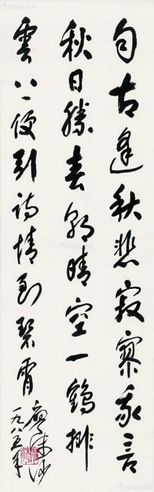 自古逢秋悲寂寥我言
秋日勝春朝晴空一鶴排
雲上便引詩情到碧霄
廖沫沙
一九八五年